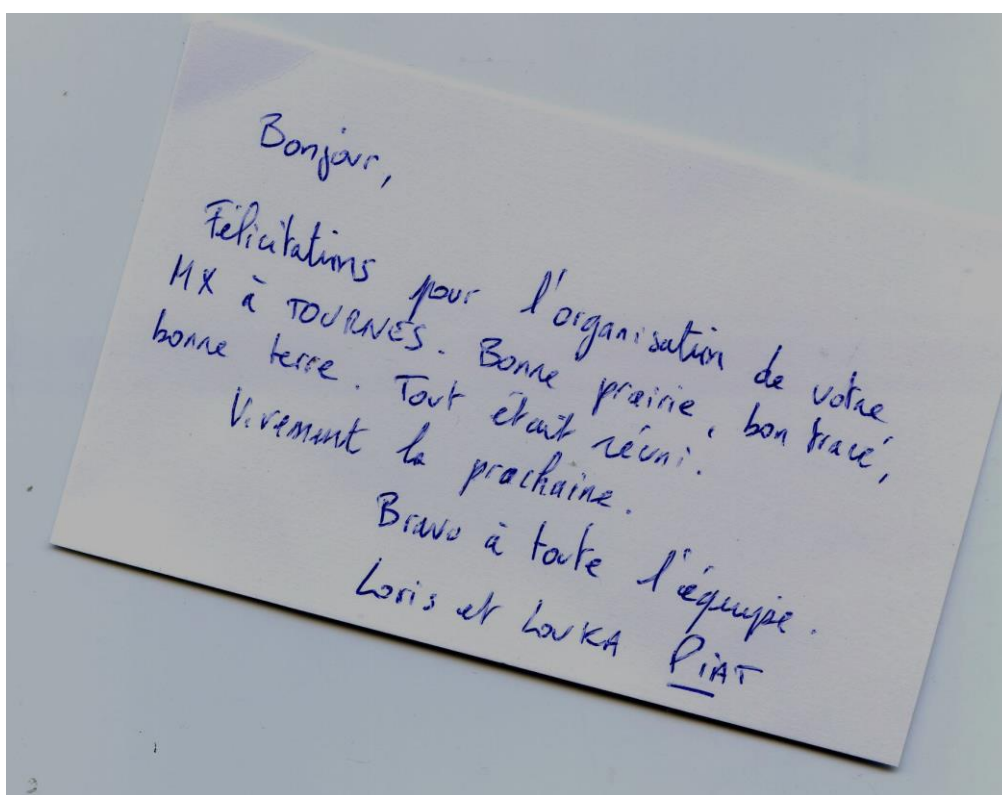 Bonjour,
Félicitations pour l'organisation de votre
MX à TOURNES. Bonne prairie, bon tracé,
bonne terre. Tout était réuni.
Vivement la prochaine.
Bravo à toute l'équipe.
Loris et LOUKA PIAT